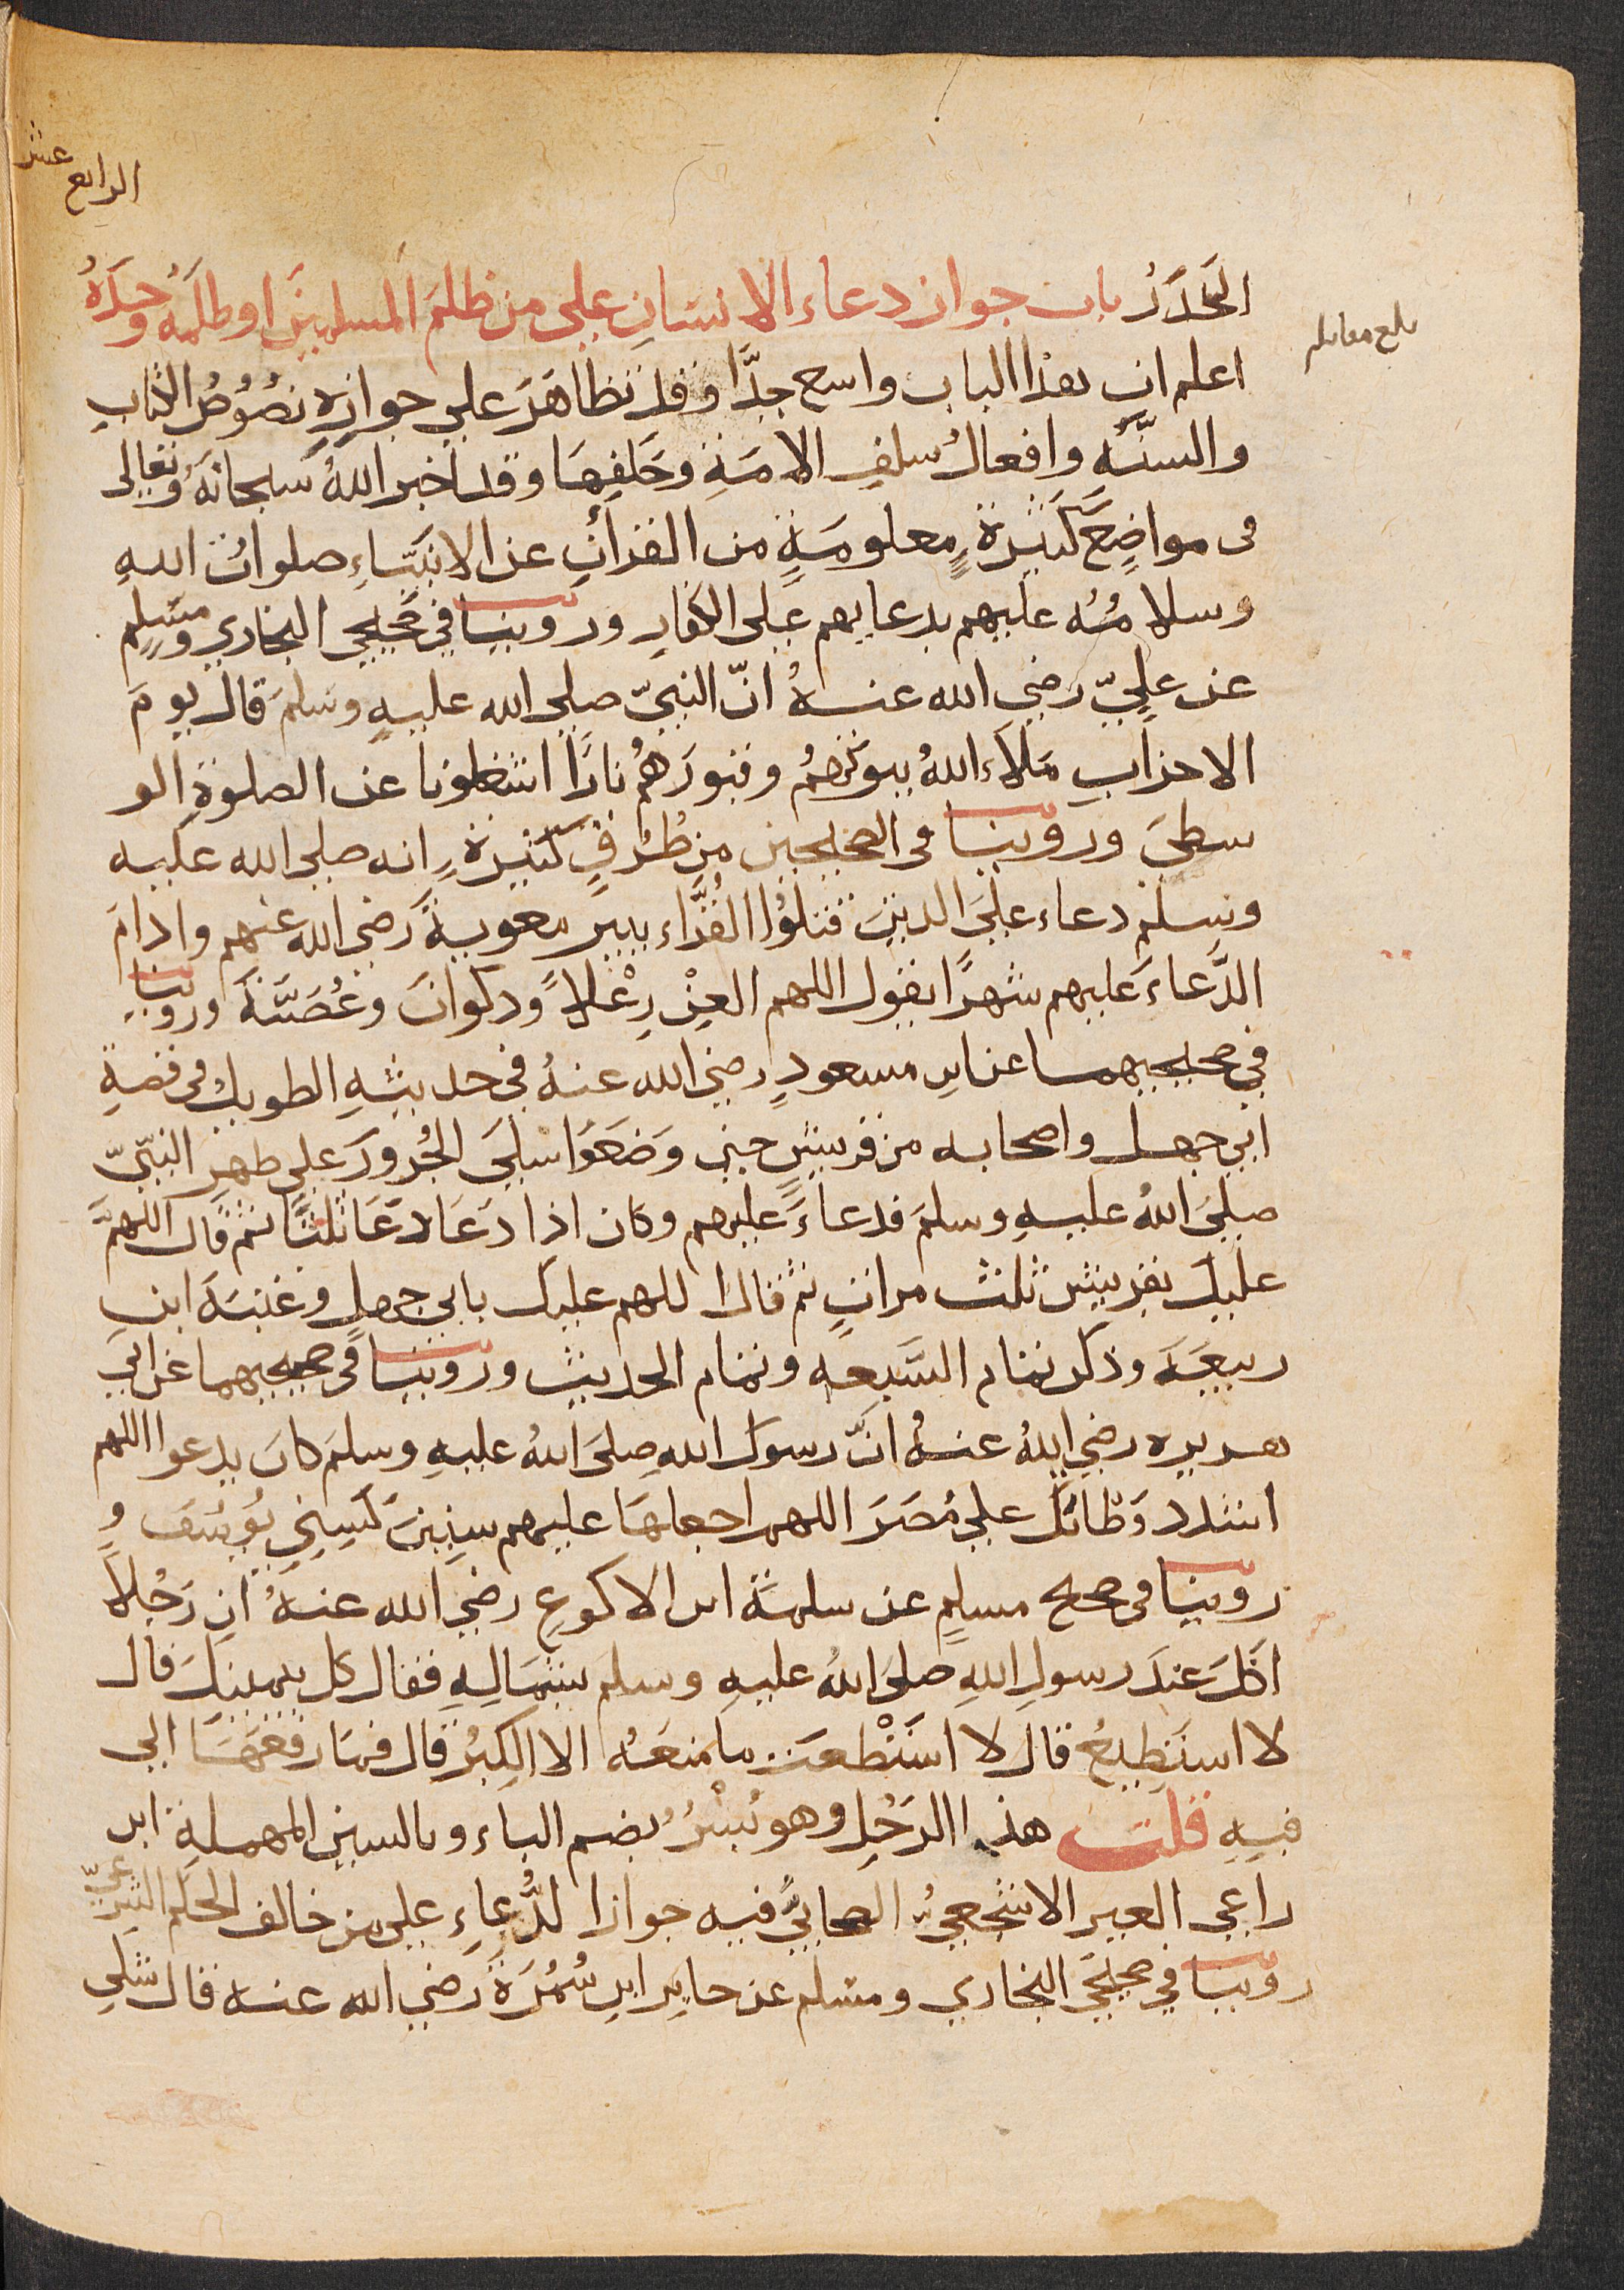 الرابع عشر
الحَذَرُ باب جواز دعاء الانسَانِ على من ظلمَ المسلمينَ او ظلمَه وحدَهُ
بلغ مقابله
اعلم ان هذا الباب واسع جدًّا وقد تظاهَرَ على جوازِهِ نصُوصُ الكتابِ
والسنَّهِ وافعالُ سلفِ الامَةِ وخَلَفِهَا وقد اخبر اللهُ سبحانَهُ وتعالى
فى مواضِعَ كثيرةٍ معلومَةٍ من القرآنِ عن الانبيَاءِ صلواتُ اللهِ
وسلامُهُ عليهم بدعايهم على الكفارِ وروينا في صحيحي البخاري ومسلمٍ
عن عليّ رضي الله عنهُ انّ النبيّ صلى الله عليهِ وسَلمَ قال يومَ
الاحزابِ مَلاءَ اللهُ بيوتَهُم وقبورَهُمْ نارًا اشغلونا عن الصلوةِ الو
سطىَ وروينا فى الصحيحين من طُرُقٍ كثيرةٍ انه صلى الله عليه
وسلم دعاء علىَ الذينَ قتلوُا القُرَّاء ببير معوية رضي الله عنهم وادامَ
الدُّعاءَ عليهم شهرًا يقول اللهم العنْ رِعْلاً وذكوانَ وعُصَيَّةَ وروينا
في صحيحيهما عن ابن مسعودٍ رضي الله عنهُ في حديثِهِ الطويل فى قصةِ
ابي جهل واصحابه من قريشٍ حين وَضَعَوُا سلىَ الجُزورَ على ظهرِ النبيّ
صلىَ اللهُ عليهِ وسلمَ فدعاءَ عليهم وكان اذا دَعَا دَعَا ثلثًا ثم قال اللهمَّ
عليك بقريش ثلث مراتٍ ثم قال اللهم عليك بابي جهلٍ وعتبَهَ ابنِ
ربيعَةَ وذكر تمام السَّبعه وتمام الحديث وروينا فى صحيحيهما عن ابي
هريره رضي اللهُ عنهُ انَّ رسول اللهِ صلىَ اللهُ عليهِ وسلمَ كانَ يدعوا اللهم
اشدد وَطاتَكَ على مُضَرَ اللهم اجعلهَا عليهم سِنِينَ كَسِنِي يُوسُفَ وِ
روينا فى صحيح مسلمٍ عن سلمَةَ ابن الاكوعِ رضي الله عنهُ ان رَجُلاً
اكَلَ عندَ رسولِ اللهِ صلىَ اللهُ عليهِ وسلم بشِمَالِهِ فقال كل بيمينكَ قال
لا استَطِيعُ قال لا استَطعت ما منعَهُ الا الكِبرُ قال فما رفعَهَا الى
فيهِ قلت هذا الرَجُل وهو بُسْرُ بضم الباء وبالسين المهملةِ ابن
راعي العير الاشجعيُّ الصحابيُّ فيه جواز الدُّعاءِ على من خالف الحكم الشرعيّ
روينا في صحيحَي البخاري ومسلم عن جابر ابن سَمُرَةَ رضي الله عنه قال شكى